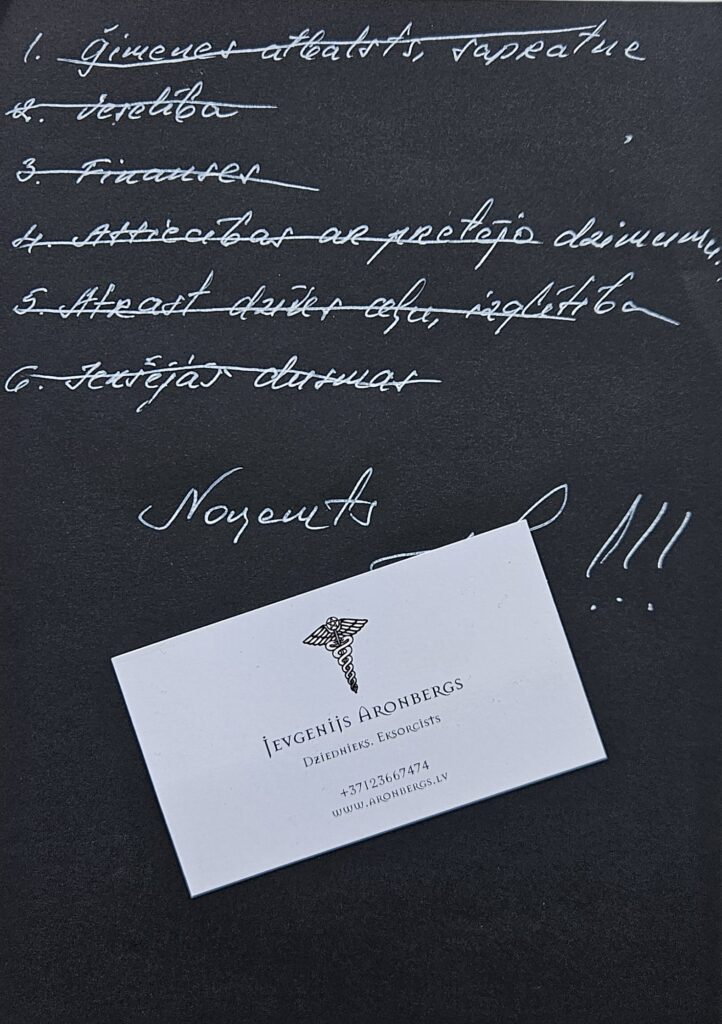 1. Ģimenes atbalsts, sapratne
2. Veselība
3. Finanses
4. Attiecības ar pretējo dzimumu.
5. Atrast dzīves ceļu, izglītība
6. Iekšējās dusmas
Noņemts
!!!
Jevgenijs Aronbergs
Dziednieks. Eksorcists
+37123667474
www.aronbergs.lv